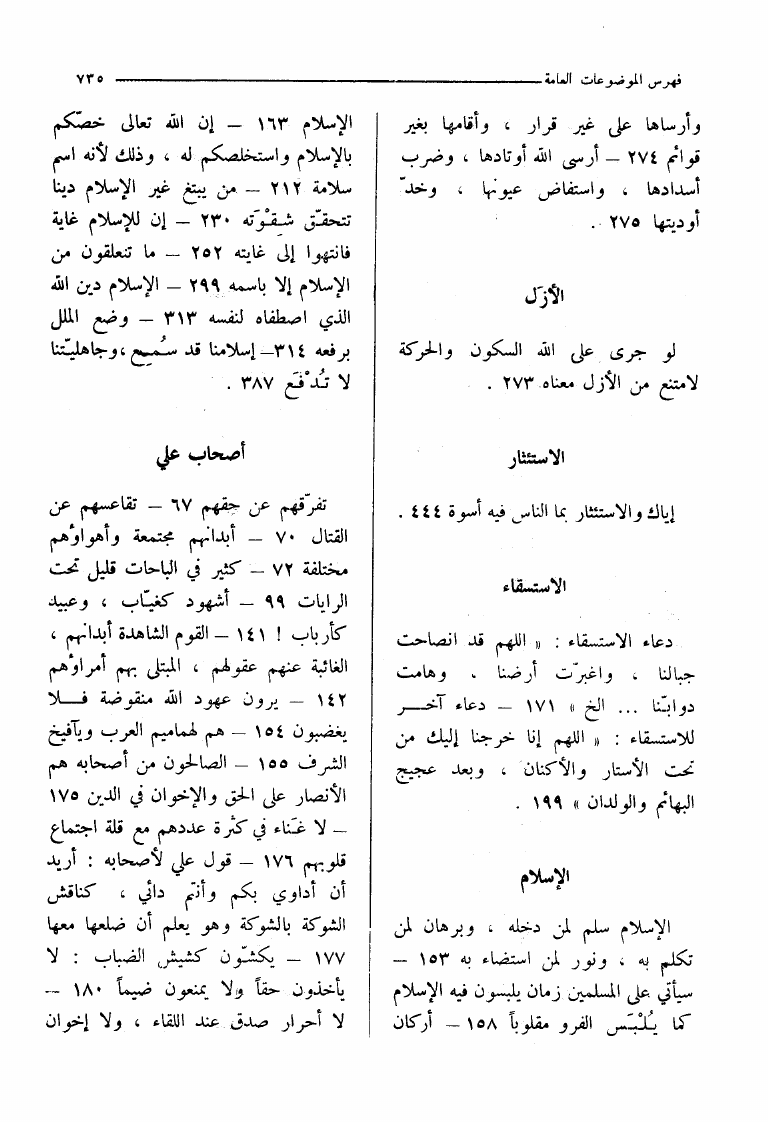 فهرس الموضوعات العامة ٧٣٥
وأرساها على غير قرار ، وأقامها بغير
قوائم ٢٧٤ – أرسى الله أوتادها ، وضرب
أسدادها ، واستفاض عيونها ، وخدّ
أوديتها ٢٧٥ .
الأزَل
لو جرى على الله السكون والحركة
لامتنع من الأزل معناه ٢٧٣ .
الاستئثار
إياك والاستئثار بما الناس فيه أسوة ٤٤٤ .
الاستسقاء
دعاء الاستسقاء : « اللهم قد انصاحت
جبالنا ، واغبرّت أرضنا ، وهامت
دوابّنا ... الخ » ١٧١ – دعاء آخـــر
للاستسقاء : « اللهم إنا خرجنا إليك من
تحت الأستار والأكنان ، وبعد عجيج
البهائم والولدان » ١٩٩ .
الإسلام
الإسلام سلم لمن دخله ، وبرهان لمن
تكلم به ، ونور لمن استضاء به ١٥٣ –
سيأتي على المسلمين زمان يلبسون فيه الإسلام
كما يُلْبَس الفرو مقلوباً ١٥٨ – أركان
الإسلام ١٦٣ – إن الله تعالى خصّكم
بالإسلام واستخلصكم له ، وذلك لأنه اسم
سلامة ٢١٢ – من يبتغ غير الإسلام دينا
تتحقّق شِقْوَته ٢٣٠ – إن للإسلام غاية
فانتهوا إلى غايته ٢٥٢ – ما تتعلقون من
الإسلام إلا باسمه ٢٩٩ – الإسلام دين الله
الذي اصطفاه لنفسه ٣١٣ – وضع الملل
برفعه ٣١٤– إسلامنا قد سُمِع ،وجاهليّتنا
لا تُدْفَع ٣٨٧ .
أصحاب علي
تفرّقهم عن حقهم ٦٧ – تقاعسهم عن
القتال ٧٠ – أبدانهم مجتمعة وأهواؤهم
مختلفة ٧٢ – كثير في الباحات قليل تحت
الرايات ٩٩ – أشهود كغيّاب ، وعبيد
كأرباب ! ١٤١ – القوم الشاهدة أبدانهم ،
الغائبة عنهم عقولهم ، المبتلى بهم أمراؤهم
١٤٢ – يرون عهود الله منقوضة فـــلا
يغضبون ١٥٤ – هم لهاميم العرب ويآفيخ
الشرف ١٥٥ – الصالحون من أصحابه هم
الأنصار على الحق والإخوان في الدين ١٧٥
– لا غَناء في كثرة عددهم مع قلة اجتماع
قلوبهم ١٧٦ – قول علي لأصحابه : أريد
أن أداوي بكم وأنتم دائي ، كناقش
الشوكة بالشوكة وهو يعلم أن ضلعها معها
١٧٧ – يكشّون كشيش الضباب : لا
يأخذون حقاً ولا يمنعون ضيماً ١٨٠ –
لا أحرار صدق عند اللقاء ، ولا إخوان